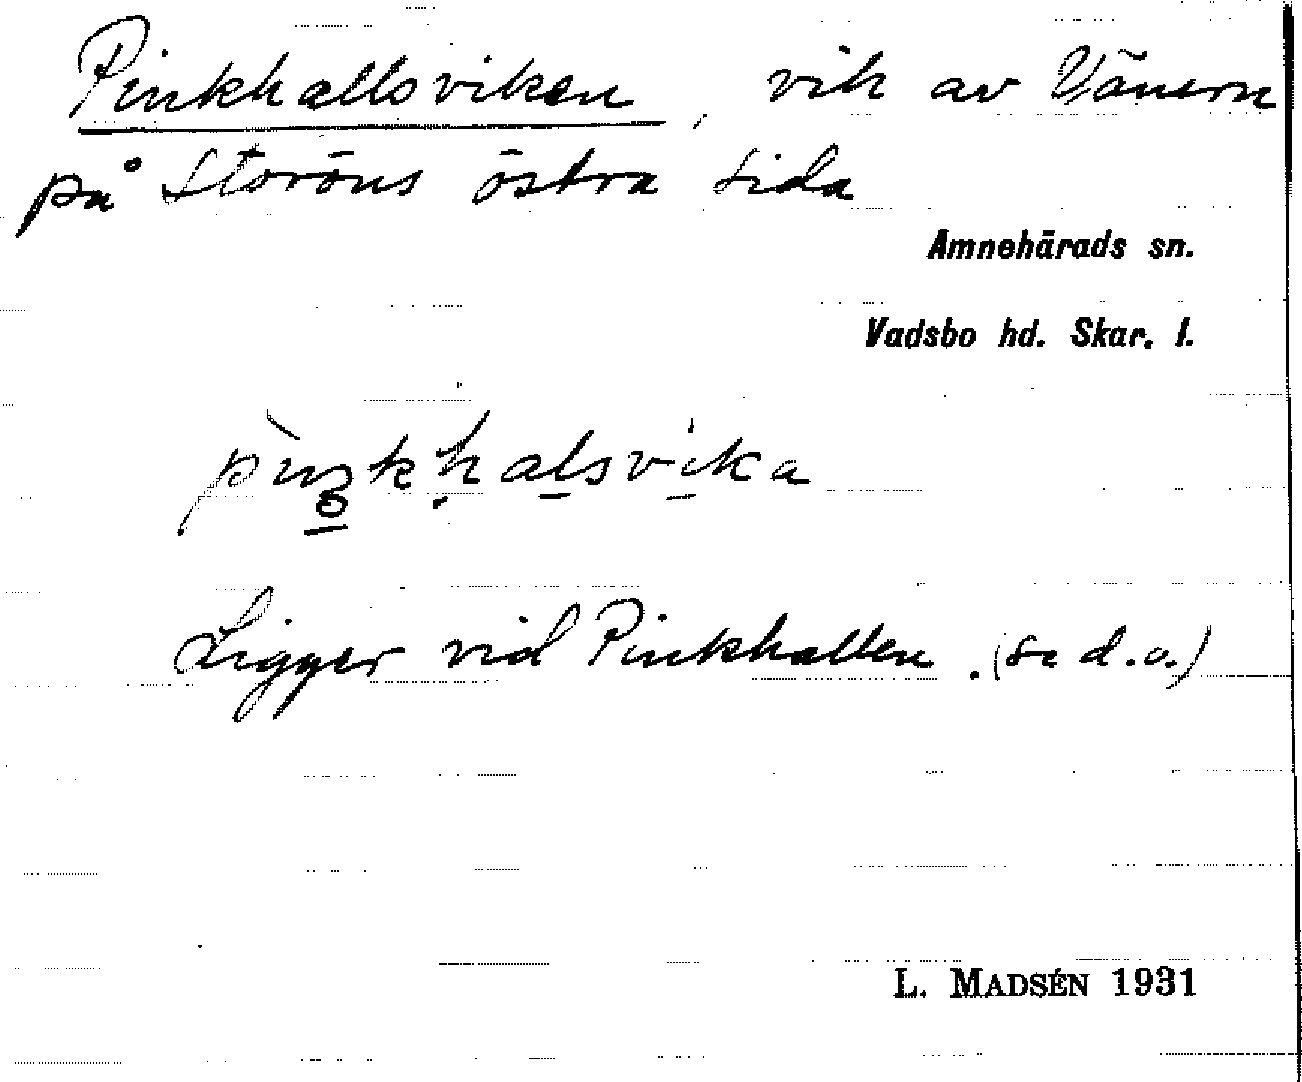 Pinkhallsviken, vik av Vänern
på Storöns östra sida
Amnehärads sn.
Vadsbo hd. Skar. l.
Ligger vid Pinkhallen. (se d.o.)
L. MADSÉN 1931